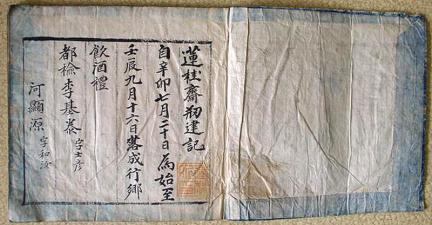 蓮桂齋刱建記
自辛卯七月二十日為始至
壬辰九月十六日落成行鄉
飲酒禮
都檢李基 字士彥
河顯源 字和汝